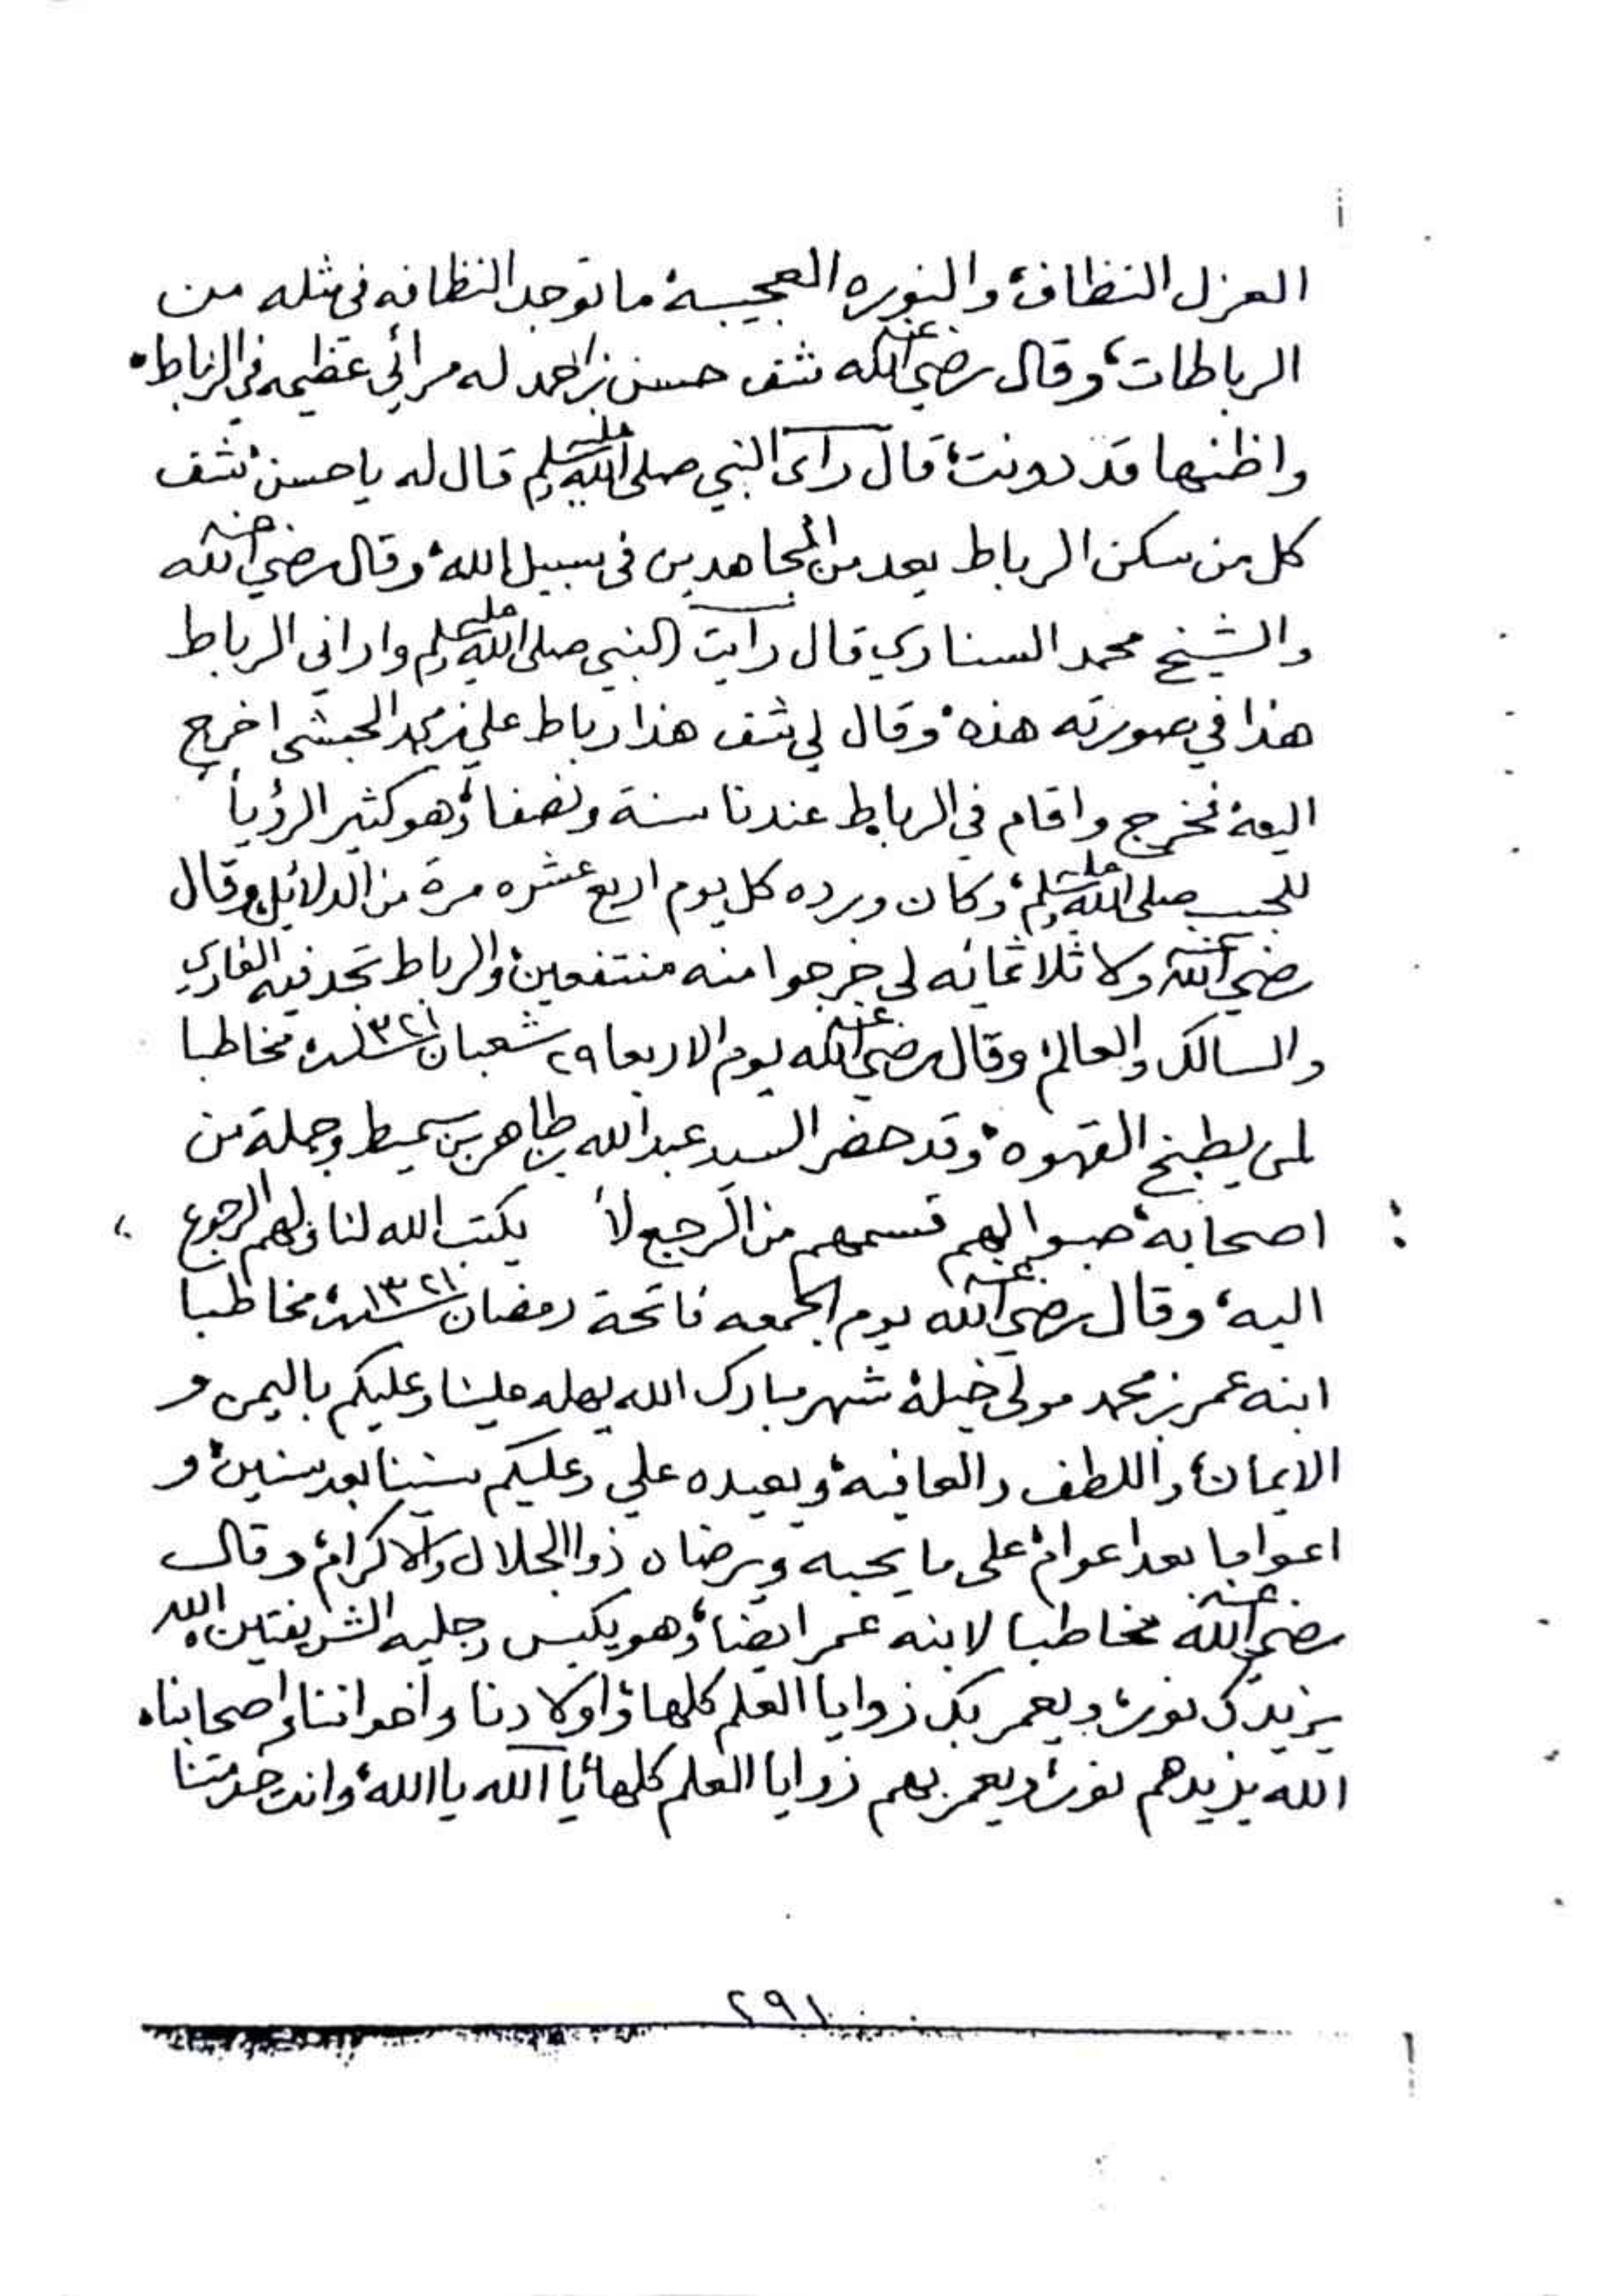 العزل النظاف، والنوره العجيبة، ما توجد النظافه في مثله من
الرباطات، وقال رضي الله عنه شف حسن بن احمد له مرائي عظيمه في الرباط،
واظنها قد دونت، قال رأى النبي صلى الله عليه وسلم قال له يا حسن، شف
كل من سكن الرباط يعد من المجاهدين في سبيل الله، وقال رضي الله عنه
والشيخ محمد السناري قال رأيت النبي صلى الله عليه وسلم واراني الرباط
هذا في صورته هذه، وقال لي شف هذا رباط علي بن محمد الحبشي اخرج
اليه، فخرج واقام في الرباط عندنا سنة ونصفا، وهو كثير الرؤيا
للحبيب صلى الله عليه وسلم، وكان ورده كل يوم اربع عشره مرة من الدلائل، وقال
رضي الله عنه ولا ثلاثمائه لي خرجوا منه منتفعين، والرباط تجد فيه القاري
والسالك والعالم، وقال رضي الله عنه يوم الاربعا ٢٩ شعبان سنة ١٣٢١، مخاطبا
لمن يطبخ القهوه، وقد حضر السيد عبدالله بن طاهر بن سميط وجملة من
اصحابه، صبوا لهم قسمهم من الرجيع لأ يكتب الله لنا ولهم الرجوع
اليه، وقال رضي الله عنه يوم الجمعه فاتحة رمضان سنة ١٣٢١، مخاطبا
ابنه عمر بن محمد مولى خيله، شهر مبارك الله يهله علينا وعليكم باليمن و
الايمان، واللطف والعافيه، ويعيده علي وعليكم سنينا بعد سنين، و
اعواما بعد اعوام، على ما يحبه ويرضاه ذوا الجلال والاكرام، وقال
رضي الله عنه مخاطبا لابنه عمر ايضا، وهو يكبس رجليه الشريفتين، الله
يزيدك نور، ويعمر بك زوايا العلم كلها، واولادنا واخواننا واصحابنا،
الله يزيدهم نور، ويعمر بهم زوايا العلم كلها، يا الله يا الله، وانت خدمتنا
٢٩١